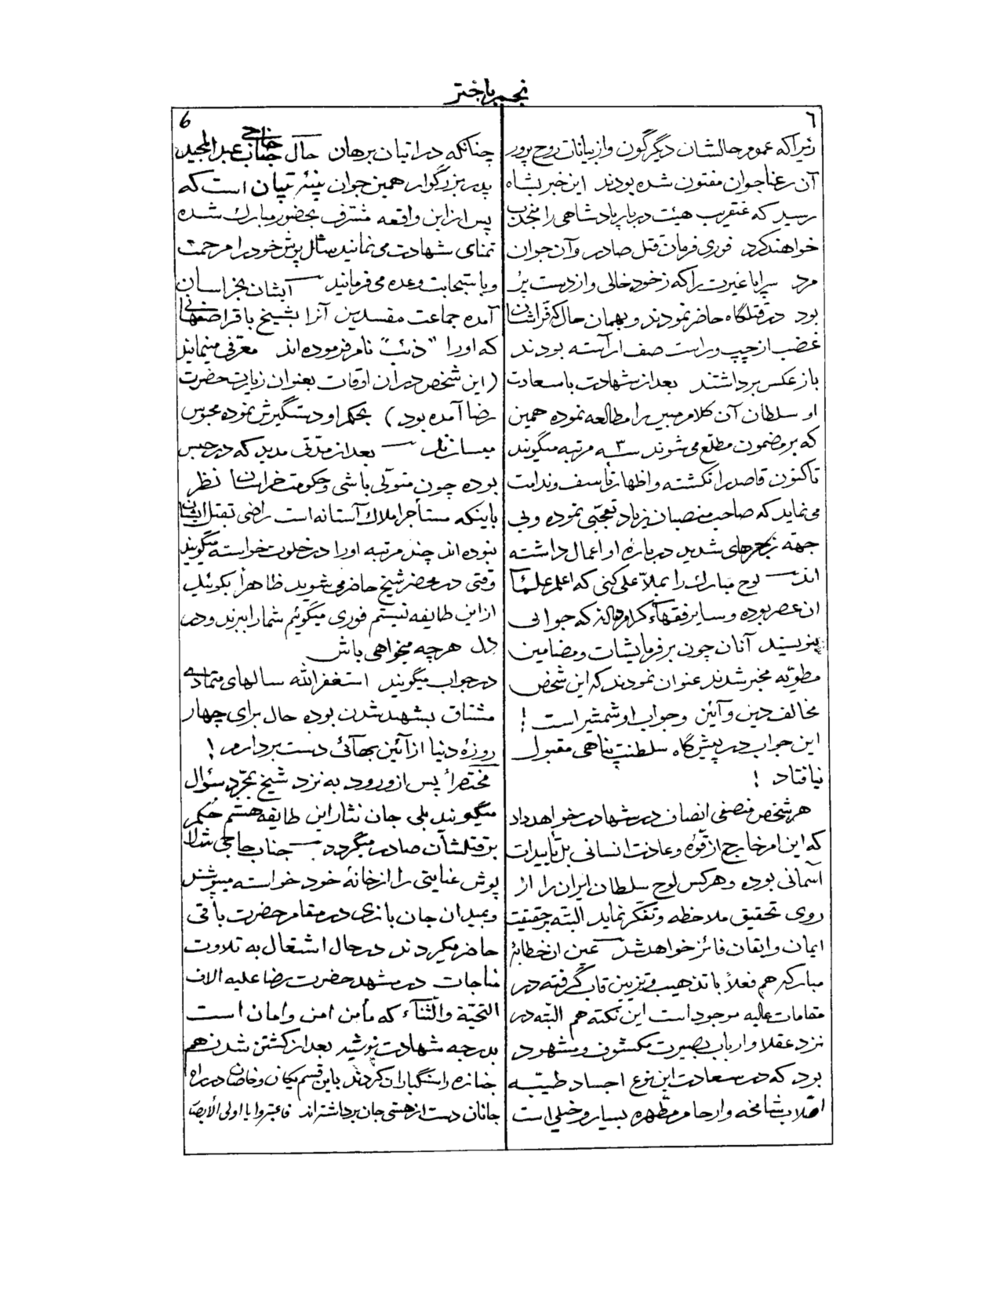 نجم باختر
٦
6
زیرا که عموم حالشان دیگرگون و از بیانات روح پرور
آن رعنا جوان مفتون شده بودند این خبر بشاه
رسید که عنقریب هیئت دربار پادشاهی را منجذب
خواهند کرد فوری فرمان قتل صادر و آن جوان
مرد سراپا غیرت را که از خود خالی و از دوست پر
بود در قتلگاه حاضر نمودند و بهمان حال که فراشان
غضب از چپ و راست صف آراسته بودند
باز عکس برداشتند بعد از شهادت با سعادت
او سلطان آن کلام مبین را مطالعه نموده همین
که بر مضمون مطلع می شوند سه ۳ مرتبه میگویند
تا کنون قاصد را نکشته و اظهار تأسف و ندامت
می نماید که صاحب منصبان زیاد تعجبی نموده و بی
جهة زجرهای شدید درباره او اعمال داشته
اند لوح مبارک را بملا علی کنی که اعلم علماء
ان عصر بوده و سایر فقهاء که جوابی
بنویسند آنان چون بر فرمایشات و مضامین
مطویّه مخبر شدند عنوان نمودند که این شخص
مخالف دین و آئین و جواب او شمشیر است !
این جواب در پیش گاه سلطنت پناهی مقبول
نیافتاد !
هر شخص منصفی انصاف در شهادت خواهد داد
که این امر خارج از قوّه و عادت انسانی بل تأییدات
آسمانی بوده و هر کس لوح سلطان ایران را از
روی تحقیق ملاحظه و تفکر نماید البته بحقیقت
ایمان و ایقان فائز خواهد شد عین ان خطابهٔ
مبارکه هم فعلاً با تذهیب و تزیین قاب گرفته در
مقامات عالیه موجود است این نکته هم البته در
نزد عقلا و ارباب بصیرت مکشوف و مشهود
برد که در سعادت این نوع اجساد طیّبه
اصلاب شامخه و ارحام مطهره بسیار دخیل است
چنانکه در اتیان برهان حال جناب حاجی عبد المجید
پدر بزرگوار همین جوان نیز تبیان است که
پس از این واقعه مشرف بحضور مبارک شده
تمنای شهادت می نمایند سئال پوش خود را مرحمت
و باستجابت وعده می فرمایند ایشان بخراسان
آمده جماعت مفسدین آنرا بشیخ باقر اصفهانی
که او را "ذئب" نام فرموده اند معرفی مینمایند
(این شخص در ان اوقات بعنوان زیارت حضرت
رضا آمده بود) بحکم او دستگیرش نموده محبوس
میسازند بعد از مدتی مدید که در حبس
بوده چون متولی باشی و حکومت خراسان نظر
باینکه مستأجر املاک آستانه است راضی بقتل ایشان
نبوده اند چند مرتبه او را در خلوت خواسته میگویند
وقتی در محضر شیخ حاضر می شوید ظاهراً بگوئید
از این طایفه نیستم فوری میگوئیم شما را ببرند و در
دل هر چه میخواهی باش
در جواب میگویند استغفر الله سالهای متمادی
مشتاق بشهید شدن بوده حال برای چهار
روزهٔ دنیا از آئین بهائی دست بردارم !
مختصراً پس از ورود به نزد شیخ بمجرّد سؤال
میگویند بلی جان نثار این طایفه هستم حکم
بر قتلشان صادر میگردد جناب حاجی شالا
پوش عنایتی را از خانهٔ خود خواسته میپوشند
و بمیدان جان بازی در مقام حضرت باقی
حاضر میگردند در حال اشتغال به تلاوت
مناجات در مشهد حضرت رضا علیه الاف
التحیّة والثّناء که مأمن امن و امان است
بدرجه شهادت نوشید بعد از کشتن شدن هم
جنازه را سنگباران کردند باین قسم پاکان و خاصان در راه
جانان دست از هستی جان برداشته اند فاعتبروا یا اولی الابصار